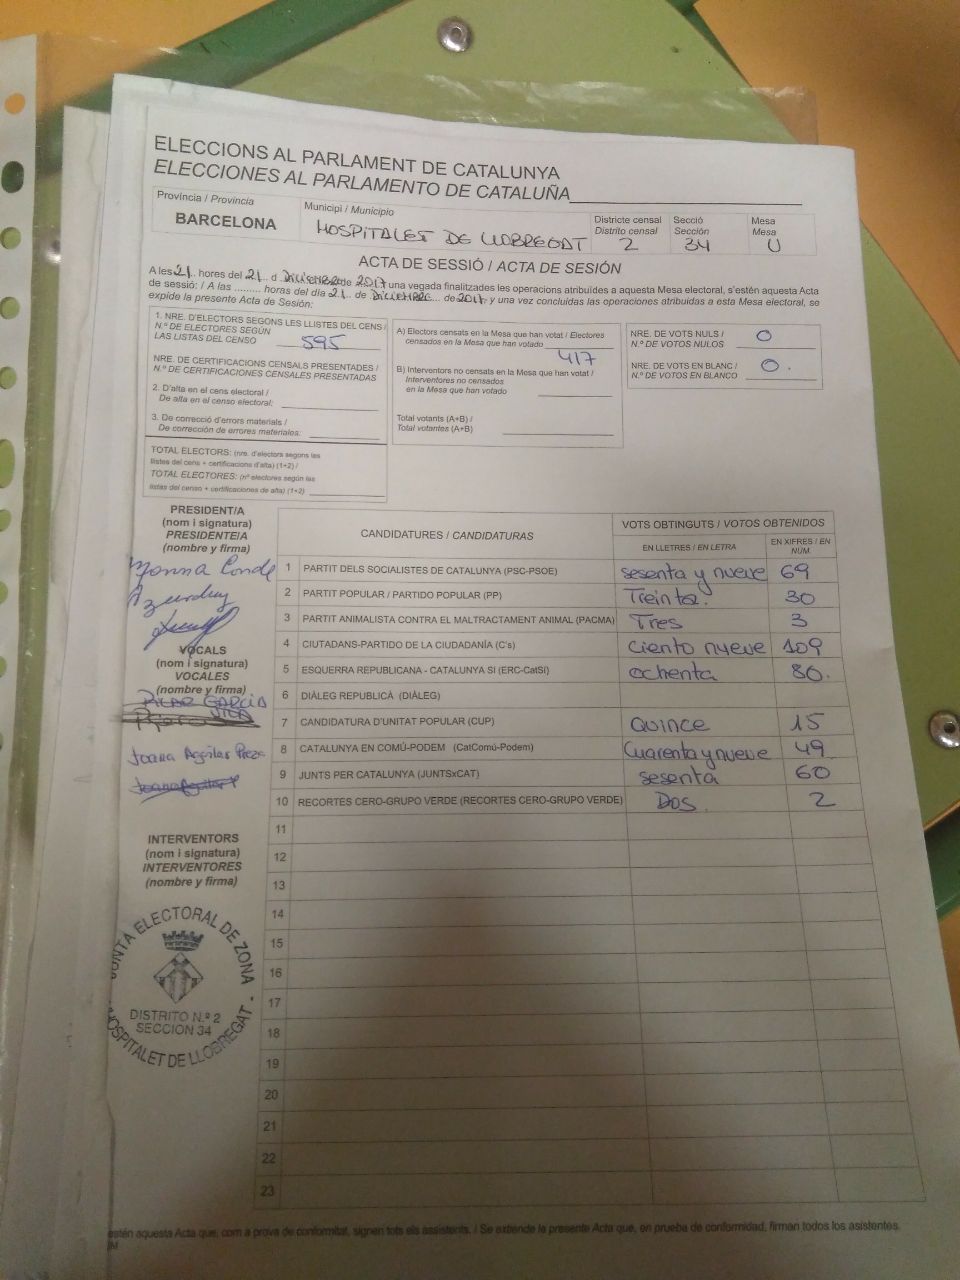 ELECCIONS AL PARLAMENT DE CATALUNYA
ELECCIONES AL PARLAMENTO DE CATALUÑA
Província / Provincia
BARCELONA
Municipi / Municipio
HOSPITALET DE LLOBREGAT
Districte censal
Distrito censal
2
Secció
Sección
34
Mesa
Mesa
U
ACTA DE SESSIÓ / ACTA DE SESIÓN
A les 21 hores del 21 d Diciembre de 2017 una vegada finalitzades les operacions atribuïdes a aquesta Mesa electoral, s'estén aquesta Acta
de sessió: / A las ......... horas del día 21 de Diciembre de 2017, y una vez concluidas las operaciones atribuidas a esta Mesa electoral, se
expide la presente Acta de Sesión:
1. NRE. D'ELECTORS SEGONS LES LLISTES DEL CENS /
N.º DE ELECTORES SEGÚN
LAS LISTAS DEL CENSO 595
NRE. DE CERTIFICACIONS CENSALS PRESENTADES /
N.º DE CERTIFICACIONES CENSALES PRESENTADAS
2. D'alta en el cens electoral /
De alta en el censo electoral:
3. De correcció d'errors materials /
De corrección de errores materiales:
TOTAL ELECTORS: (nre. d'electors segons les
llistes del cens + certificacions d'alta) (1+2) /
TOTAL ELECTORES: (nº electores según las
listas del censo + certificaciones de alta) (1+2)
A) Electors censats en la Mesa que han votat / Electores
censados en la Mesa que han votado 417
B) Interventors no censats en la Mesa que han votat /
Interventores no censados
en la Mesa que han votado
Total votants (A+B) /
Total votantes (A+B)
NRE. DE VOTS NULS /
N.º DE VOTOS NULOS 0
NRE. DE VOTS EN BLANC /
N.º DE VOTOS EN BLANCO 0.
PRESIDENT/A
(nom i signatura)
PRESIDENTE/A
(nombre y firma)
VOCALS
(nom i signatura)
VOCALES
(nombre y firma)
PILAR GARCIA
VILA
Joana Aguilar
INTERVENTORS
(nom i signatura)
INTERVENTORES
(nombre y firma)
JUNTA ELECTORAL DE ZONA
DISTRITO N.º 2
SECCION 34
HOSPITALET DE LLOBREGAT
CANDIDATURES / CANDIDATURAS
VOTS OBTINGUTS / VOTOS OBTENIDOS
EN LLETRES / EN LETRA
EN XIFRES / EN
NÚM.
1 PARTIT DELS SOCIALISTES DE CATALUNYA (PSC-PSOE) sesenta y nueve 69
2 PARTIT POPULAR / PARTIDO POPULAR (PP) Treinta. 30
3 PARTIT ANIMALISTA CONTRA EL MALTRACTAMENT ANIMAL (PACMA) Tres 3
4 CIUTADANS-PARTIDO DE LA CIUDADANÍA (C's) ciento nueve 109
5 ESQUERRA REPUBLICANA - CATALUNYA SÍ (ERC-CatSí) ochenta 80.
6 DIÀLEG REPUBLICÀ (DIÀLEG)
7 CANDIDATURA D'UNITAT POPULAR (CUP) Quince 15
8 CATALUNYA EN COMÚ-PODEM (CatComú-Podem) Cuarenta y nueve 49
9 JUNTS PER CATALUNYA (JUNTSxCAT) sesenta 60
10 RECORTES CERO-GRUPO VERDE (RECORTES CERO-GRUPO VERDE) Dos. 2
11
12
13
14
15
16
17
18
19
20
21
22
23
estén aquesta Acta que, com a prova de conformitat, signen tots els assistents. / Se extiende la presente Acta que, en prueba de conformidad, firman todos los asistentes.